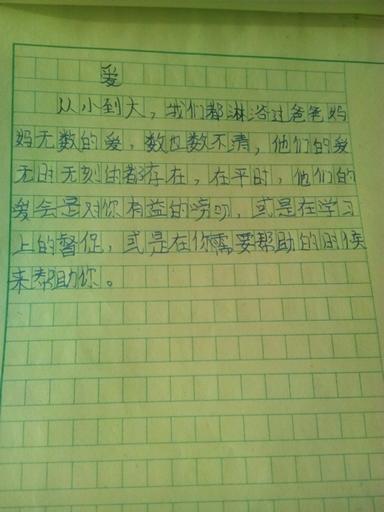 爱
从小到大，我们都淋浴过爸爸妈
妈无数的爱，数也数不清，他们的爱
无时无刻的都存在，在平时，他们的
爱会是对你有益的唠叨，或是在学习
上的督促，或是在你需要帮助的时候
来帮助你。